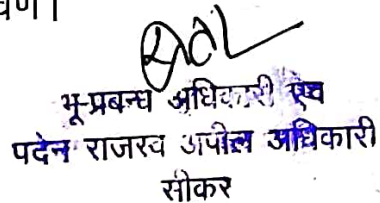 भू-प्रबन्ध अधिकारी एंव
पदेन राजस्व अपील अधिकारी
सीकर